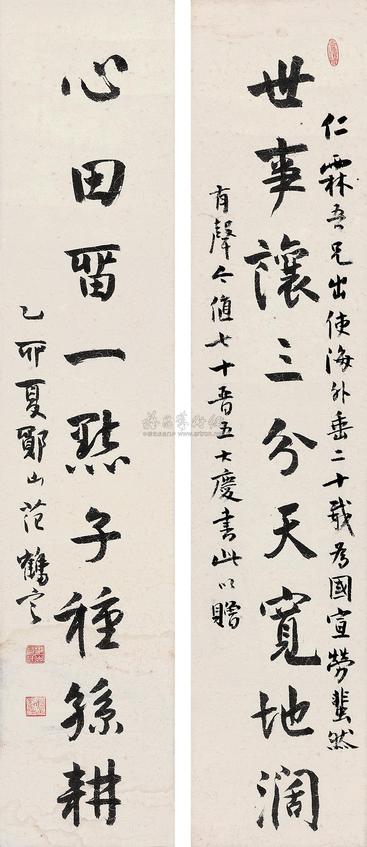 仁霖吾兄出使海外垂二十载為國宣勞蜚然
世事讓三分天寬地濶
有聲今值七十晋五大慶書此以贈
心田畱一點子種孫耕
乙卯夏鄞山范鶴言